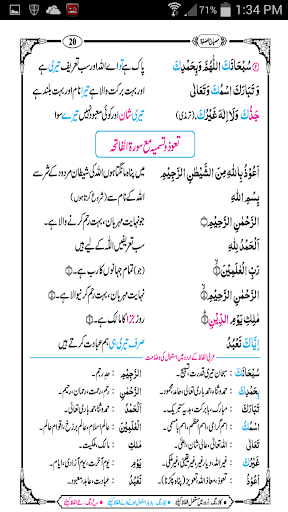 71% 1:34 PM
20
مصباح الصلوٰة
سُبْحَانَكَ اللّٰهُمَّ وَبِحَمْدِكَ پاک ہے تو اے اللہ اور سب تعریف تیری ہے
وَ تَبَارَكَ اسْمُكَ وَ تَعَالٰى اور بہت برکت والا ہے تیرا نام اور بہت بلند ہے
جَدُّكَ وَلَا اِلٰهَ غَيْرُكَ (ترمذی) تیری شان اور کوئی معبود نہیں تیرے سوا
تعوذ و تسمیہ مع سورۃ الفاتحہ
اَعُوْذُ بِاللّٰهِ مِنَ الشَّيْطٰنِ الرَّجِيْمِ میں پناہ مانگتا ہوں اللہ کی شیطان مردود کے شر سے
بِسْمِ اللّٰهِ اللہ کے نام سے (شروع کرتا ہوں)
الرَّحْمٰنِ الرَّحِيْمِ جو نہایت مہربان، بہت رحم کرنے والا ہے۔
اَلْحَمْدُ لِلّٰهِ سب تعریفیں اللہ کے لیے ہیں
رَبِّ الْعٰلَمِيْنَ (جو) تمام جہانوں کا رب ہے۔
الرَّحْمٰنِ الرَّحِيْمِ نہایت مہربان، بہت رحم کرنے والا ہے۔
مٰلِكِ يَوْمِ الدِّيْنِ روز جزا کا مالک ہے۔
اِيَّاكَ نَعْبُدُ صرف تیری ہی ہم عبادت کرتے ہیں
عربی الفاظ کے اردو میں استعمال کی وضاحت
سُبْحَانَكَ : سبحان تیری قدرت، تسبیح۔ الرَّجِيْمِ : حد رجم۔
بِحَمْدِكَ : حمد و ثنا، حمد باری تعالیٰ، حامد، محمود۔ الرَّحْمٰنِ : رحم، رحمت، رحمان، رحیم۔
تَبَارَكَ : مبارک، برکت، ہدیہ تبریک۔ اَلْحَمْدُ : حمد و ثنا، حمد باری تعالیٰ، محمود۔
اسْمُكَ : اسم گرامی، اسم اعظم، اسم با مسمی۔ الْعٰلَمِيْنَ : عالم اسلام، عالم برزخ، اقوام عالم۔
تَعَالٰى : اللہ تعالیٰ، عالی شان، اعلیٰ۔ مٰلِكِ : مالک، ملکیت۔
غَيْرُكَ : غیر اللہ، دیار غیر، غیر یقینی، غیر ملکی۔ يَوْمِ : یوم آخرت، یوم آزادی، ایام۔
اَعُوْذُ : تعوذ، العیاذ باللہ (پناہ پکڑنا)۔ نَعْبُدُ : عبادت، عابد، معبود۔